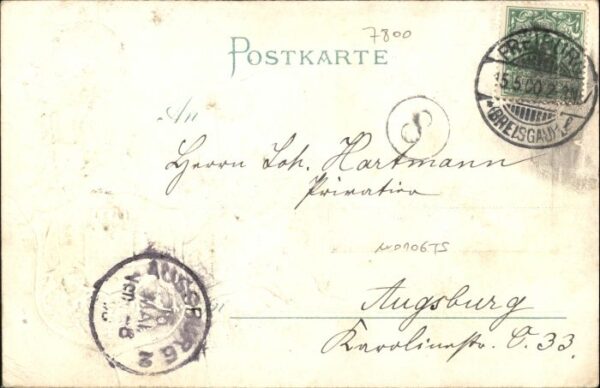 7800
POSTKARTE
FREIBURG
15.5.00.2-3N.
*(BREISGAU)
An
8
Herrn Joh. Hartmann
Privatier
AUGSBURG 2
16 MAI
Vorm. 8
Augsburg
Karolinestr. C. 33.